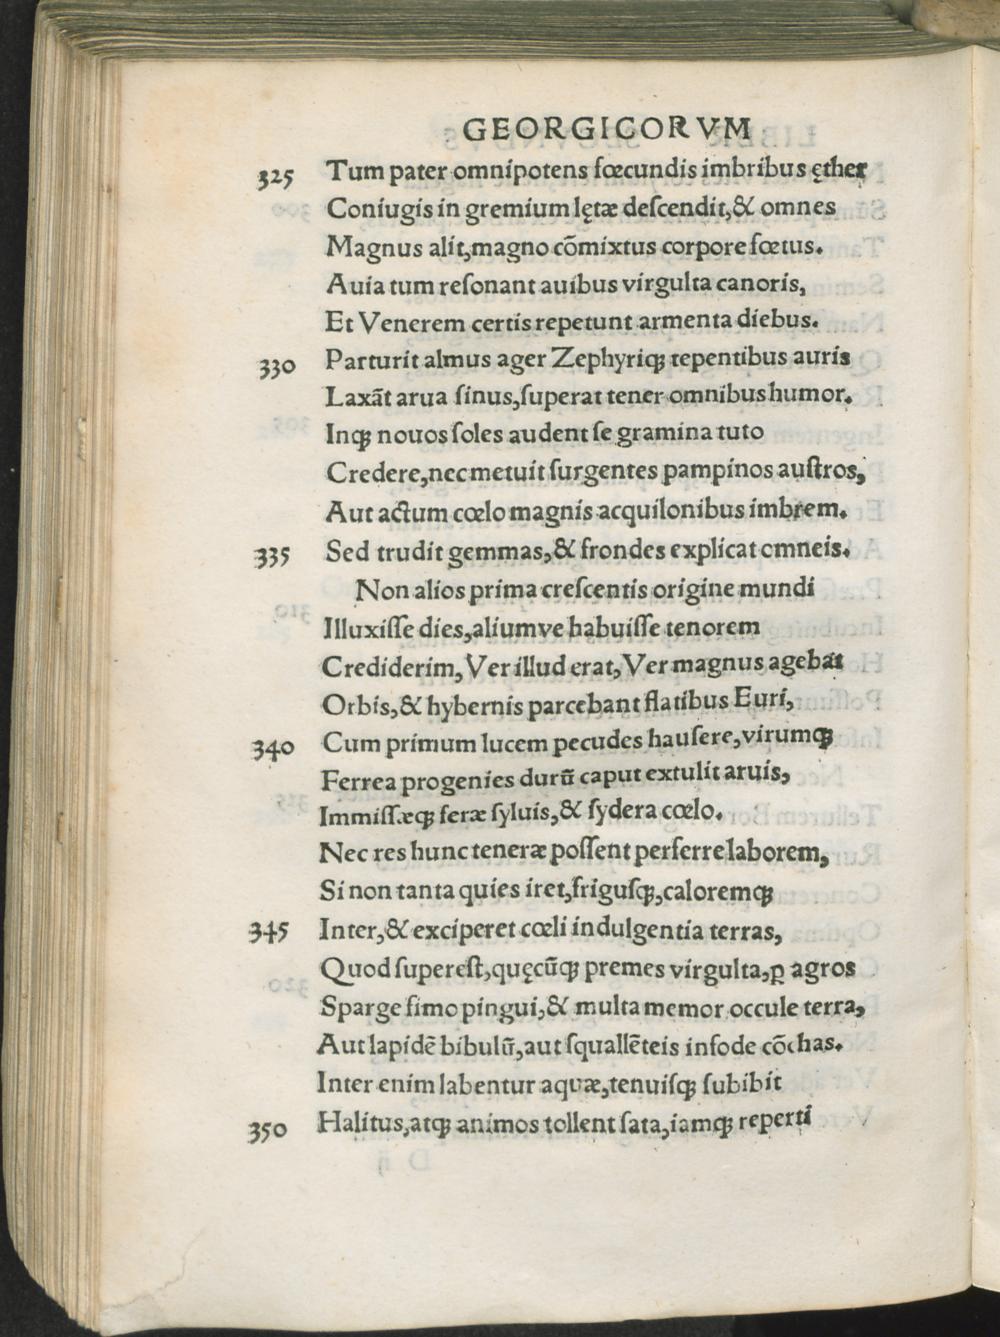 GEORGICORVM
325 Tum pater omnipotens fœcundis imbribus ęther
Coniugis in gremium lętæ deſcendit,& omnes
Magnus alit,magno cõmixtus corpore fœtus.
Auia tum reſonant auibus virgulta canoris,
Et Venerem certis repetunt armenta diebus.
330 Parturit almus ager Zephyriqꝫ tepentibus auris
Laxãt arua ſinus,ſuperat tener omnibus humor.
Inqꝫ nouos ſoles audent ſe gramina tuto
Credere,nec metuit ſurgentes pampinos auſtros,
Aut actum cœlo magnis acquilonibus imbrem.
335 Sed trudit gemmas,& frondes explicat omneis.
Non alios prima creſcentis origine mundi
Illuxiſſe dies,aliumve habuiſſe tenorem
Crediderim, Ver illud erat, Ver magnus agebat
Orbis,& hybernis parcebant flatibus Euri,
340 Cum primum lucem pecudes hauſere,virumqꝫ
Ferrea progenies durũ caput extulit aruis,
Immiſſæqꝫ feræ ſyluis,& ſydera cœlo.
Nec res hunc teneræ poſſent perferre laborem,
Si non tanta quies iret,friguſqꝫ,caloremqꝫ
345 Inter,& exciperet cœli indulgentia terras,
Quod ſupereſt,quęcũqꝫ premes virgulta,ꝑ agros
Sparge fimo pingui,& multa memor occule terra,
Aut lapidẽ bibulũ,aut ſquallẽteis infode cõchas.
Inter enim labentur aquæ,tenuiſqꝫ ſubibit
350 Halitus,atqꝫ animos tollent ſata,iamqꝫ reperti